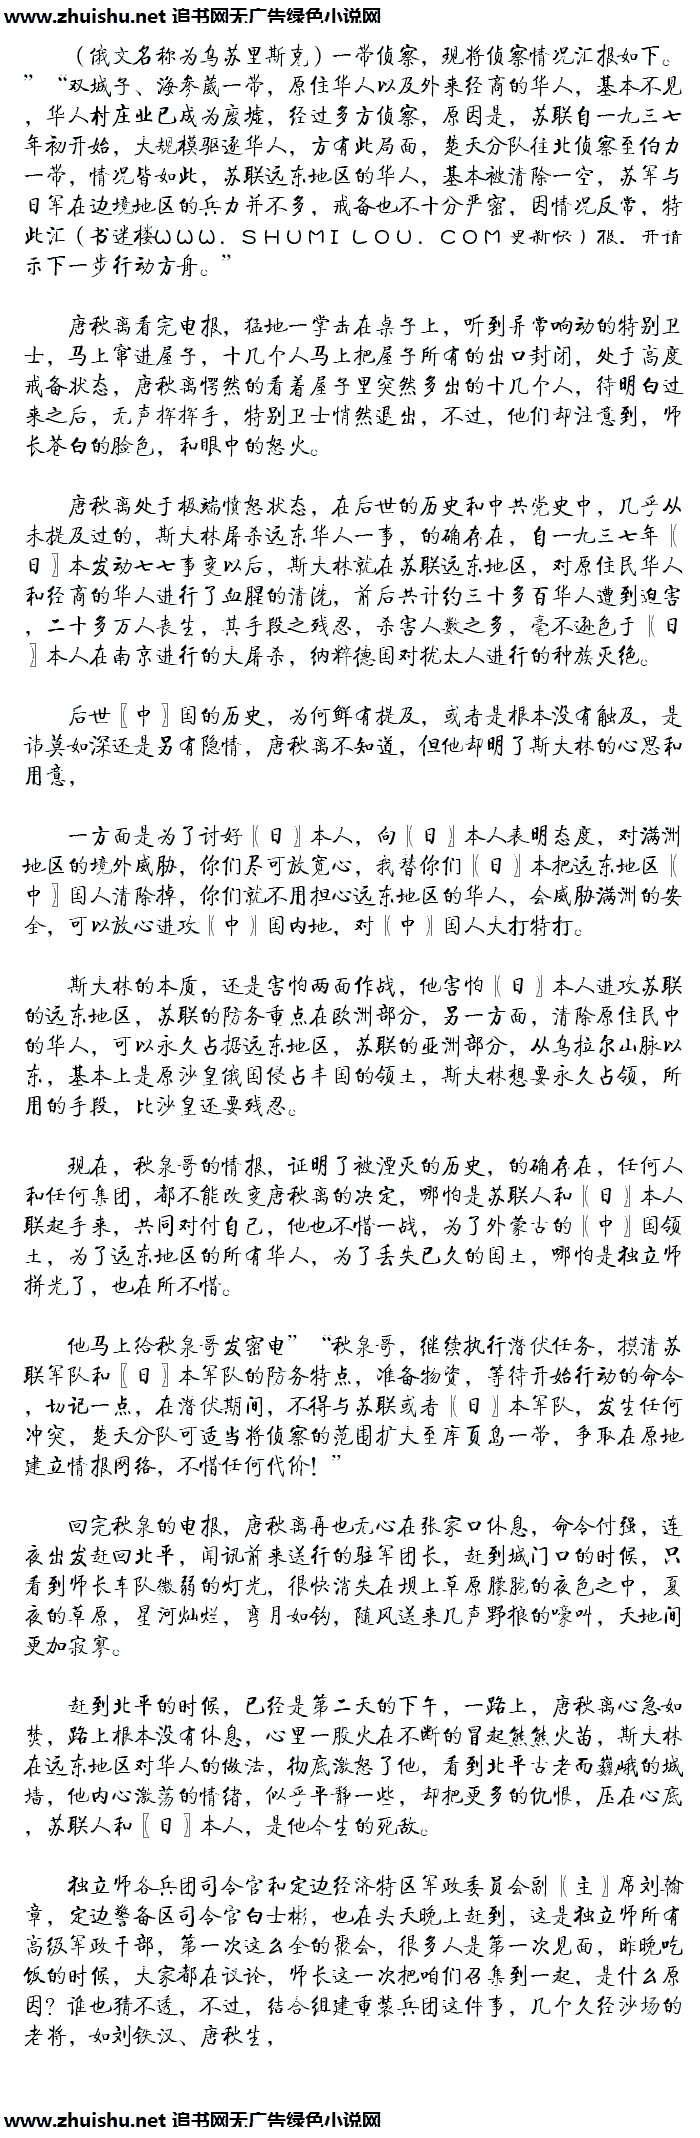 www.zhuishu.net 追书网无广告绿色小说网
（俄文名称为乌苏里斯克）一带侦察，现将侦察情况汇报如下。
”“双城子、海参葳一带，原住华人以及外来经商的华人，基本不见
，华人村庄业已成为废墟，经过多方侦察，原因是，苏联自一九三七
年初开始，大规模驱逐华人，方有此局面，楚天分队往北侦察至伯力
一带，情况皆如此，苏联远东地区的华人，基本被清除一空，苏军与
日军在边境地区的兵力并不多，戒备也不十分严密，因情况反常，特
此汇（书迷楼ＷＷＷ．ＳＨＵＭＩＬＯＵ．ＣＯＭ更新快）报．并请
示下一步行动方舟。”
唐秋离看完电报，猛地一掌击在桌子上，听到异常响动的特别卫
士，马上窜进屋子，十几个人马上把屋子所有的出口封闭，处于高度
戒备状态，唐秋离愕然的看着屋子里突然多出的十几个人，待明白过
来之后，无声挥挥手，特别卫士悄然退出，不过，他们却注意到，师
长苍白的脸色，和眼中的怒火。
唐秋离处于极端愤怒状态，在后世的历史和中共党史中，几乎从
未提及过的，斯大林屠杀远东华人一事，的确存在，自一九三七年〖
日〗本发动七七事变以后，斯大林就在苏联远东地区，对原住民华人
和经商的华人进行了血腥的清洗，前后共计约三十多百华人遭到迫害
，二十多万人丧生，其手段之残忍，杀害人数之多，毫不逊色于〖日
〗本人在南京进行的大屠杀，纳粹德国对犹太人进行的种族灭绝。
后世〖中〗国的历史，为何鲜有提及，或者是根本没有触及，是
讳莫如深还是另有隐情，唐秋离不知道，但他却明了斯大林的心思和
用意，
一方面是为了讨好〖日〗本人，向〖日〗本人表明态度，对满洲
地区的境外威胁，你们尽可放宽心，我替你们〖日〗本把远东地区〖
中〗国人清除掉，你们就不用担心远东地区的华人，会威胁满洲的安
全，可以放心进攻〖中〗国内地，对〖中〗国人大打特打。
斯大林的本质，还是害怕两面作战，他害怕〖日〗本人进攻苏联
的远东地区，苏联的防务重点在欧洲部分，另一方面，清除原住民中
的华人，可以永久占据远东地区，苏联的亚洲部分，从乌拉尔山脉以
东，基本上是原沙皇俄国侵占丰国的领土，斯大林想要永久占领，所
用的手段，比沙皇还要残忍。
现在，秋泉哥的情报，证明了被湮灭的历史，的确存在，任何人
和任何集团，都不能改变唐秋离的决定，哪怕是苏联人和〖日〗本人
联起手来，共同对付自己，他也不惜一战，为了外蒙古的〖中〗国领
土，为了远东地区的所有华人，为了丢失已久的国土，哪怕是独立师
拼光了，也在所不惜。
他马上给秋泉哥发密电”“秋泉哥，继续执行潜伏任务，摸清苏
联军队和〖日〗本军队的防务特点，准备物资，等待开始行动的命令
，切记一点，在潜伏期间，不得与苏联或者〖日〗本军队，发生任何
冲突，楚天分队可适当将侦察的范围扩大至库页岛一带，争取在原地
建立情报网络，不惜任何代价！”
回完秋泉的电报，唐秋离再也无心在张家口休息，命令付强，连
夜出发赶回北平，闻讯前来送行的驻军团长，赶到城门口的时候，只
看到师长车队微弱的灯光，很快消失在坝上草原朦胧的夜色之中，夏
夜的草原，星河灿烂，弯月如钩，随风送来几声野狼的嚎叫，天地间
更加寂寥。
赶到北平的时候，已经是第二天的下午，一路上，唐秋离心急如
焚，路上根本没有休息，心里一股火在不断的冒起熊熊火苗，斯大林
在远东地区对华人的做法，彻底激怒了他，看到北平古老而巍峨的城
墙，他内心激荡的情绪，似乎平静一些，却把更多的仇恨，压在心底
，苏联人和〖日〗本人，是他今生的死敌。
独立师各兵团司令官和定边经济特区军政委员会副〖主〗席刘翰
章，定边警备区司令官白士彬，也在头天晚上赶到，这是独立师所有
高级军政干部，第一次这么全的聚会，很多人是第一次见面，昨晚吃
饭的时候，大家都在议论，师长这一次把咱们召集到一起，是什么原
因？谁也猜不透，不过，结合组建重装兵团这件事，几个久经沙场的
老将，如刘铁汉、唐秋生，
www.zhuishu.net 追书网无广告绿色小说网